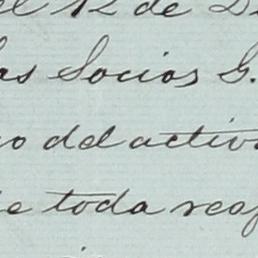 el 12 de D
os Socios G.
o del activ
e toda res